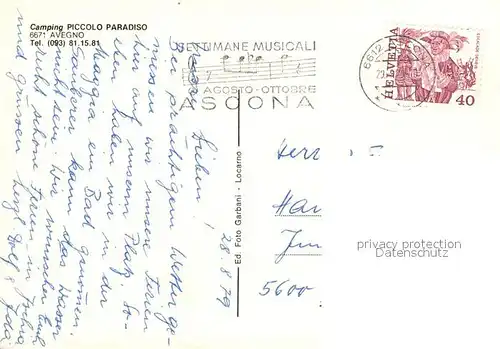 Camping PICCOLO PARADISO
6671 AVEGNO
Tel. (093) 81.15.81
SETTIMANE MUSICALI
AGOSTO-OTTOBRE
ASCONA
6612
HELVETIA
40
28.8.79
Lieben!
Bei prächtigem Wetter ge-
niessen wir unsere Ferien
hier auf unserem Platz. So-
eben haben wir in der
Maggia ein Bad genommen.
kann das Wasser
nicht sein. Wir wünschen Euch
recht schöne Ferien in Ischia
und grüssen herzl.
Ed. Foto Garbani - Locarno
Herr
5600
privacy protection
Datenschutz